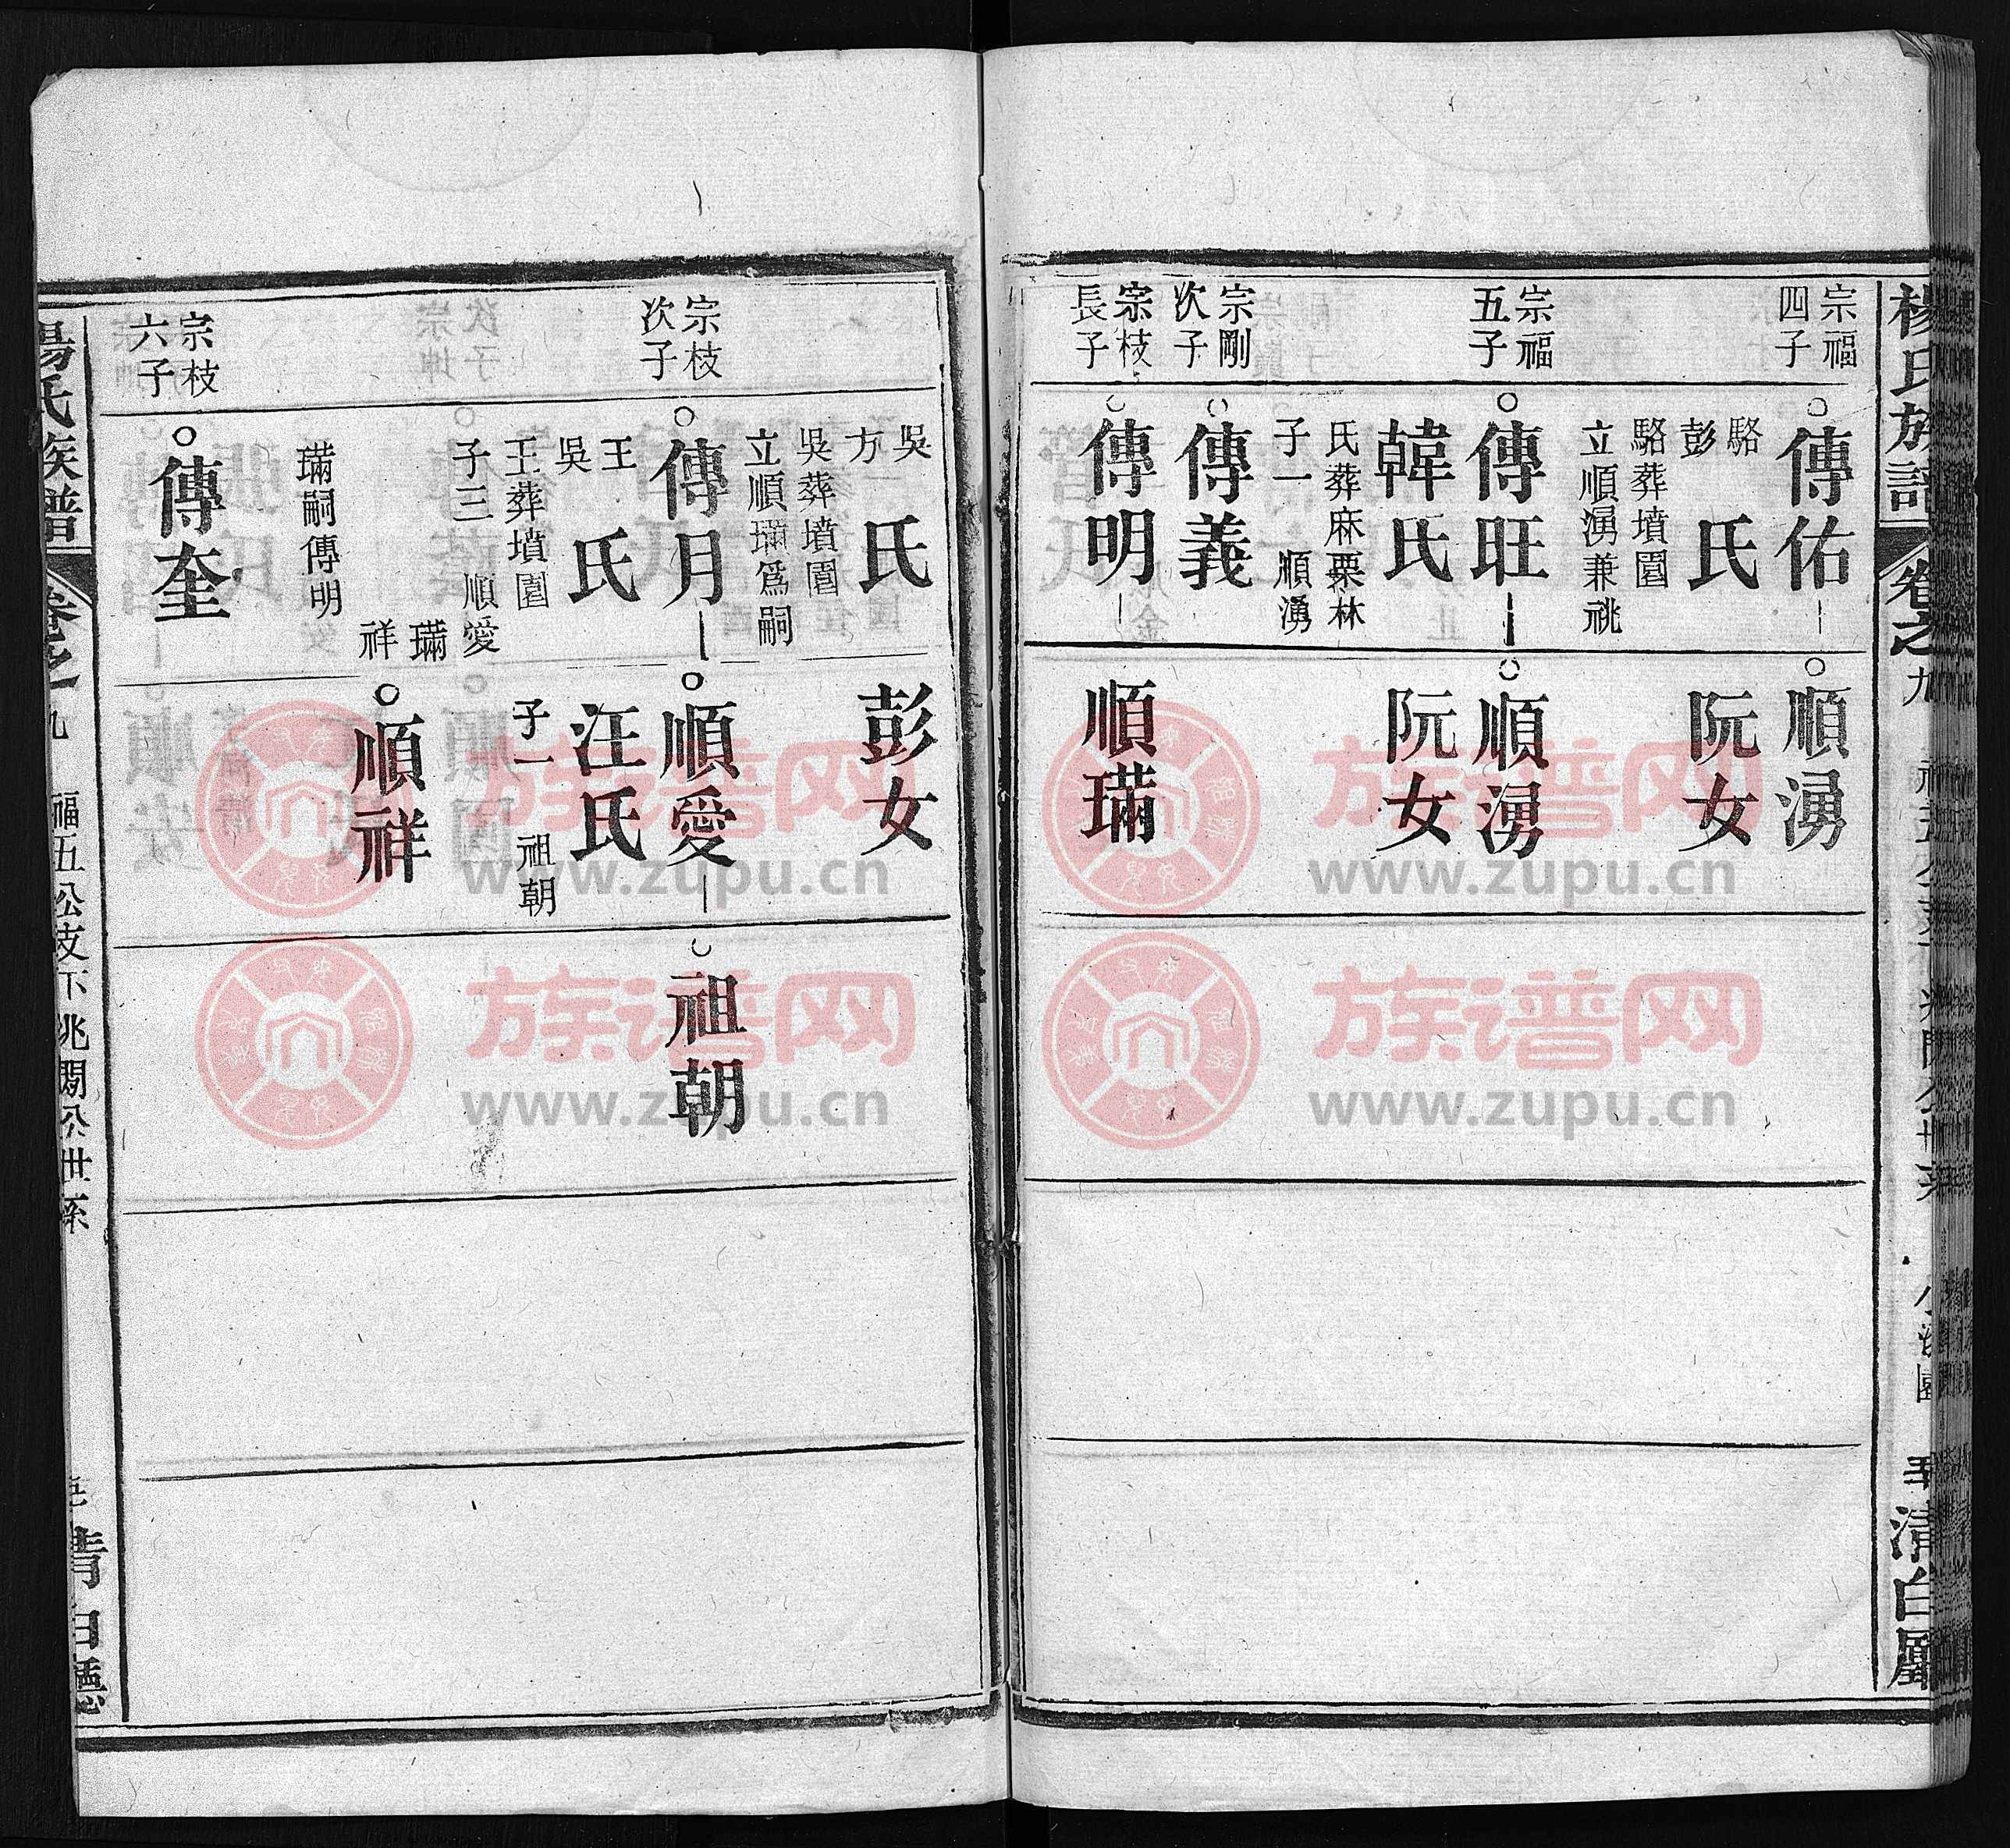 楊氏族譜
卷之九
清白廳
宗福
四子
傳佑
駱
彭
氏
駱葬墳園
立順湧兼祧
宗福
五子
傳旺
韓氏
氏葬麻栗林
子一 順湧
宗剛
次子
傳義
宗枝
長子
傳明
順湧
阮女
順湧
阮女
順璊
吳
方
氏
吳葬墳園
立順璊為嗣
宗枝
次子
傳月
王
吳
氏
王葬墳園
子三 順愛
璊
祥
璊嗣傳明
宗枝
六子
傳奎
彭女
順愛
汪氏
子一 祖朝
順祥
祖朝
楊氏族譜
卷之九
福五公支下兆閏公世系
清白廳
族谱网
www.zupu.cn
族谱网
www.zupu.cn
族谱网
www.zupu.cn
族谱网
www.zupu.cn